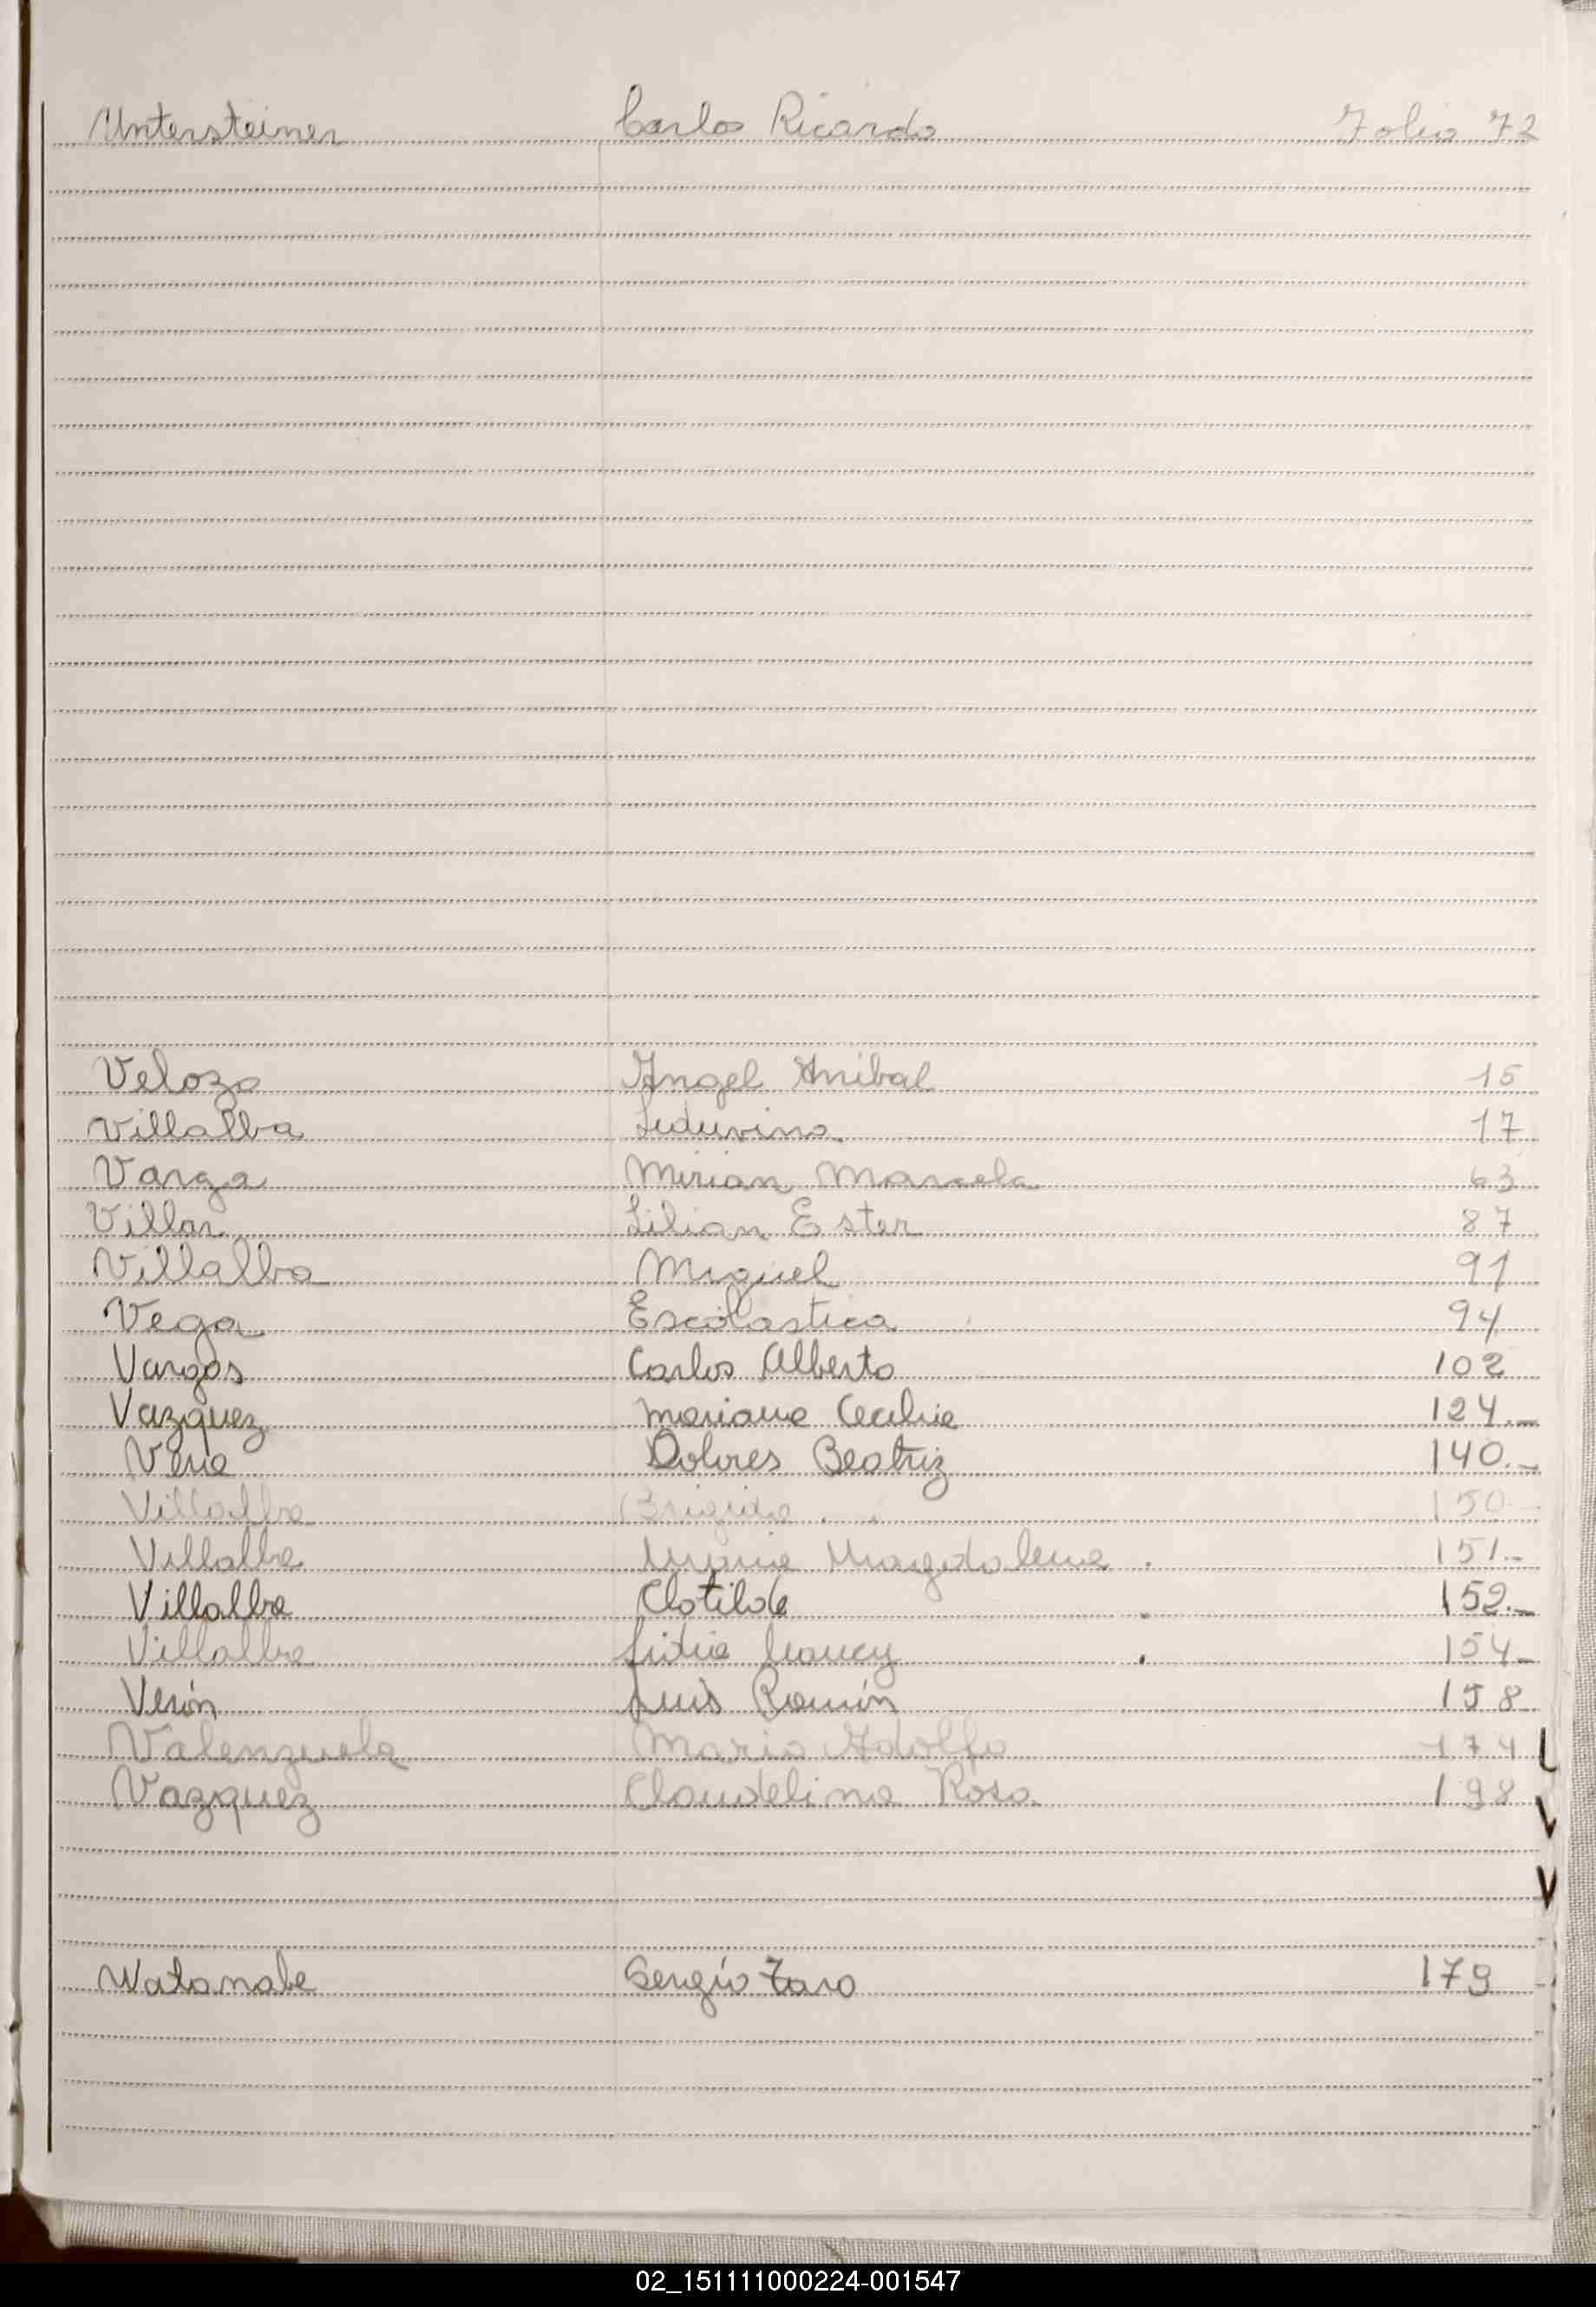 Untersteiner Carlos Ricardo Folio 72
Velozo Angel Anibal 15
Villalba Luduvina 17
Varga Mirian Marcela 63
Villar Lilian Ester 87
Villalba Miguel 91
Vega Escolastica 94
Vargas Carlos Alberto 102
Vazquez Mariana Cecilia 124.-
Vera Dolores Beatriz 140.-
Villalba Brigida 150.-
Villalba Maria Magdalena . 151.-
Villalba Clotilde . 152.-
Villalba Lidia Nancy . 154-
Verón Luis Ramón 158
Valenzuela Mario Adolfo 174
Vazquez Claudelina Rosa 198
V
Watanabe Sergio Taro 179
02_151111000224-001547